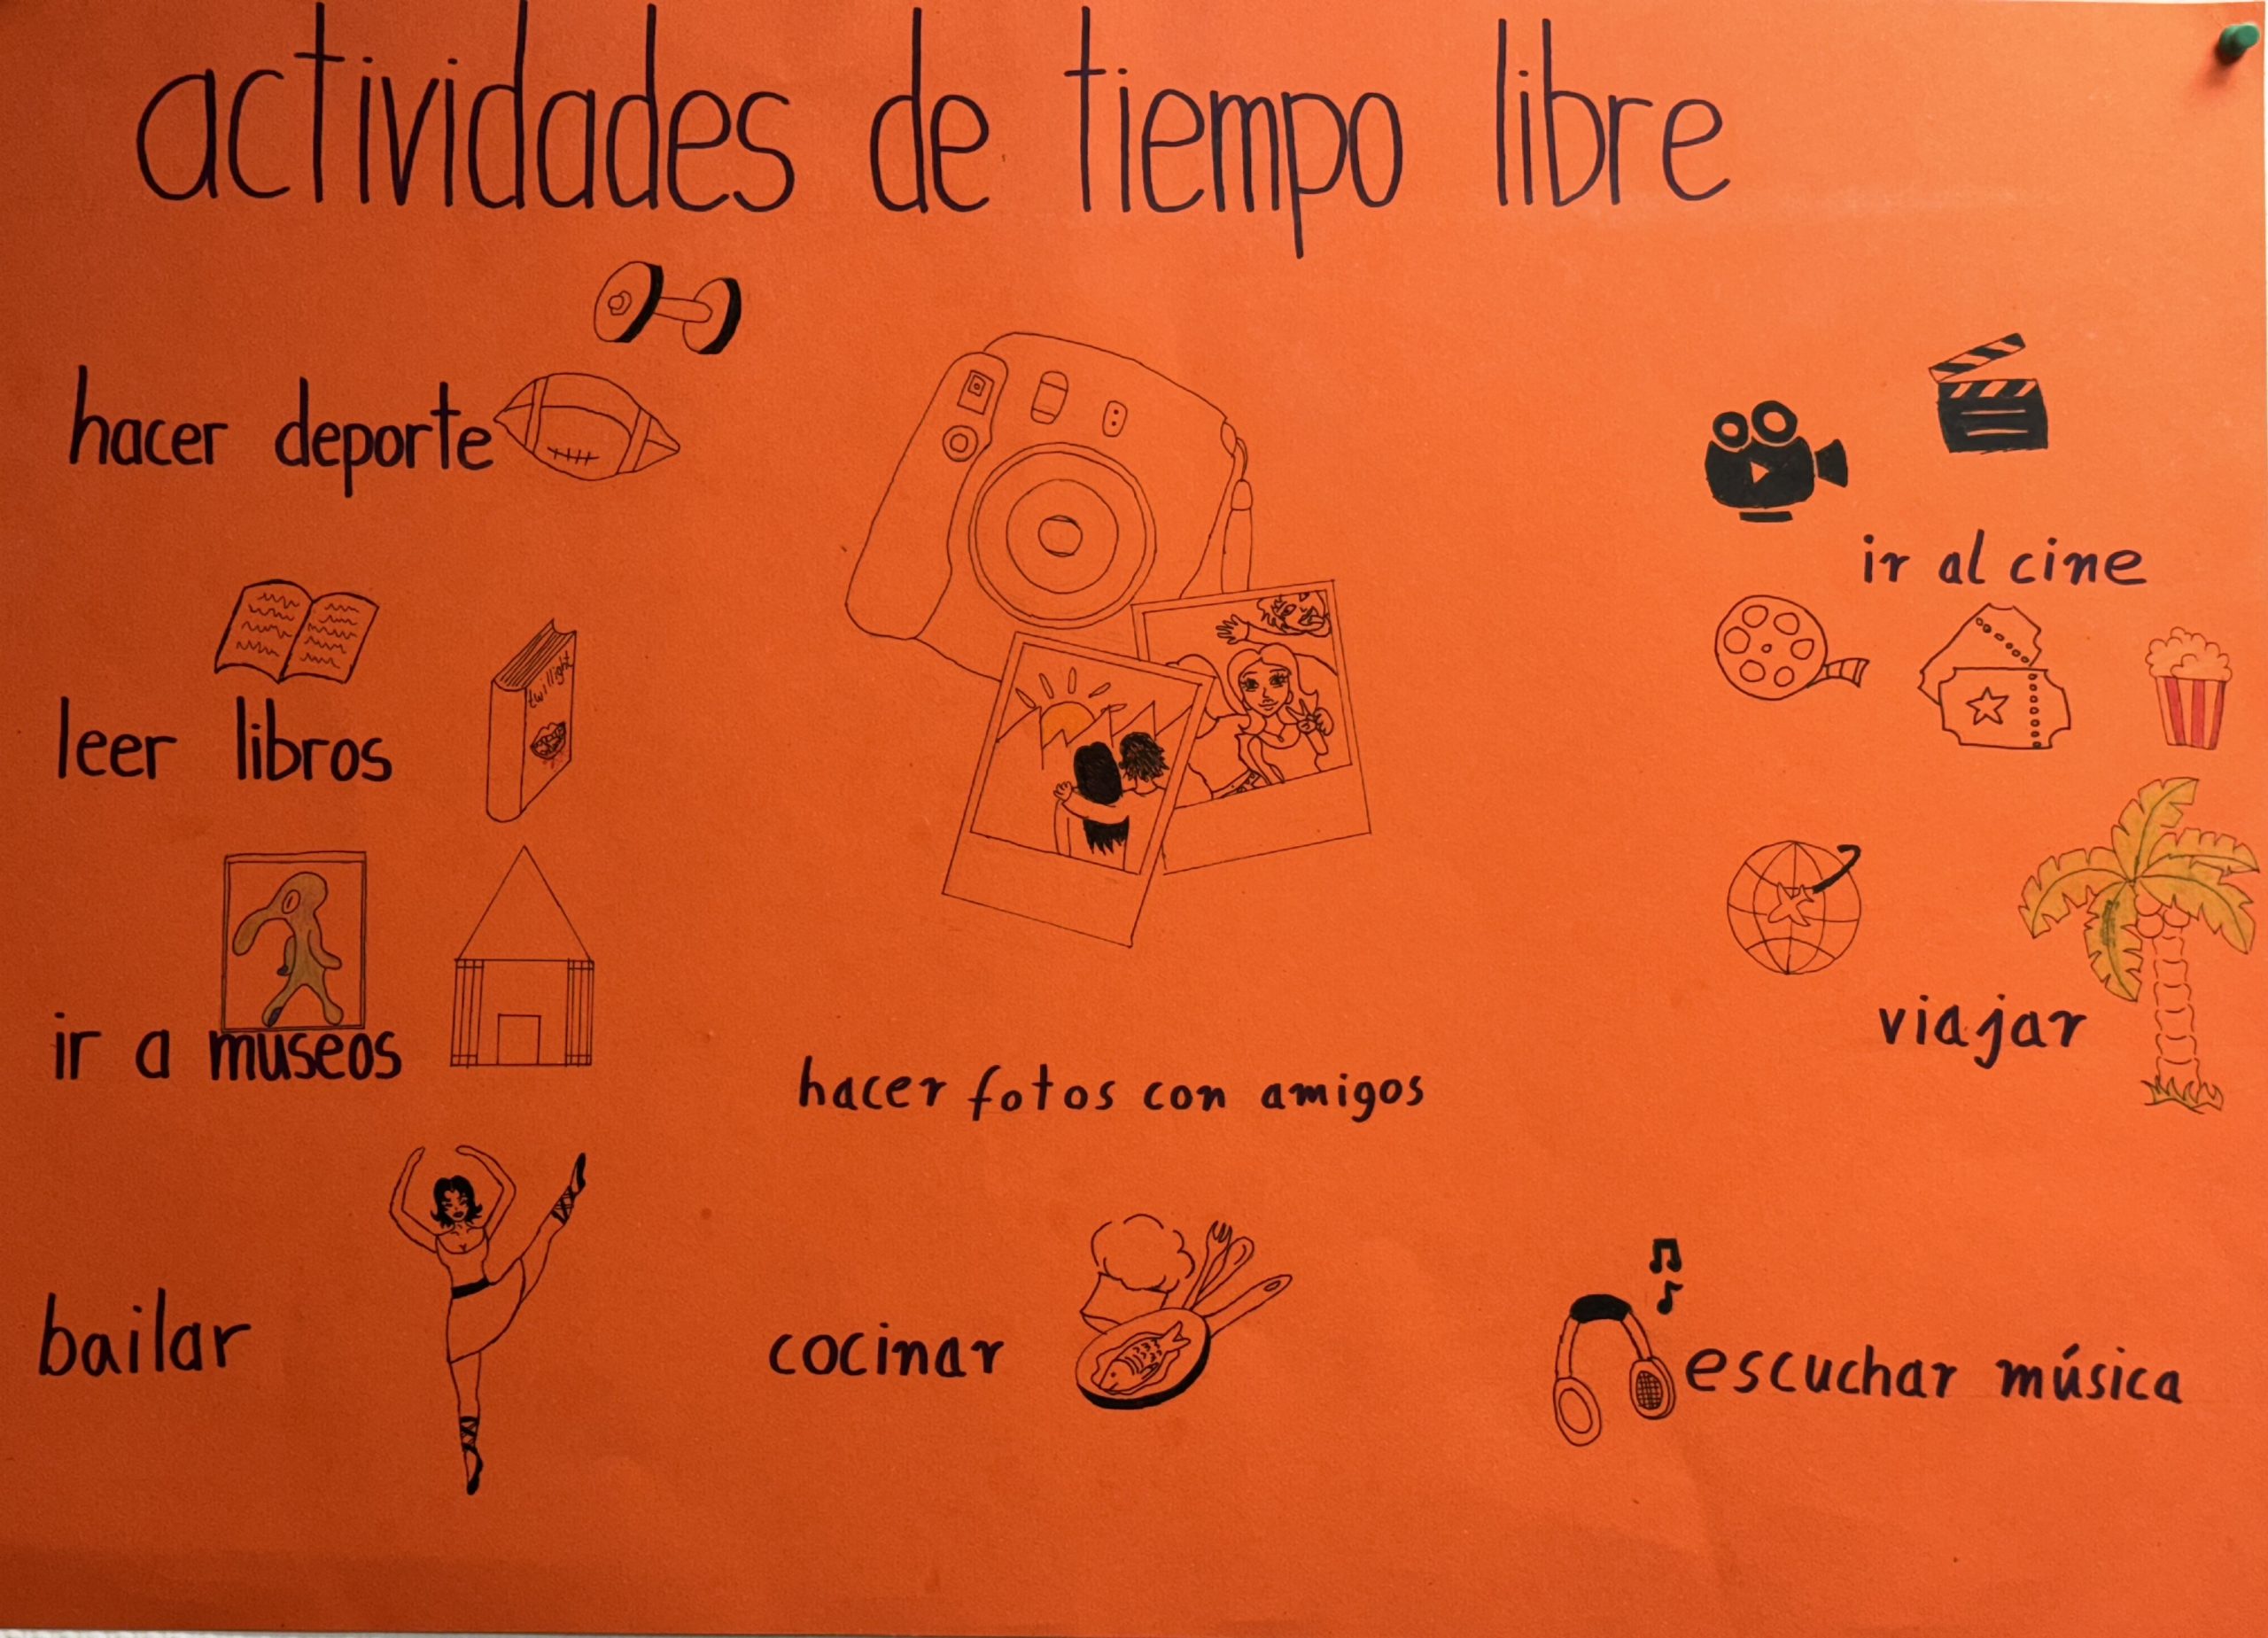 actividades de tiempo libre
hacer deporte
leer libros
twilight
ir a museos
bailar
hacer fotos con amigos
cocinar
ir al cine
viajar
escuchar música